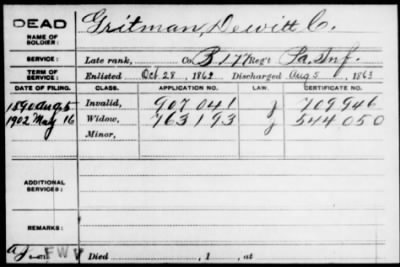 DEAD
NAME OF SOLDIER: Gritman, Dewitt C.
SERVICE: Late rank, Co. B 177 Reg't Pa. Inf.
TERM OF SERVICE: Enlisted Oct 28, 1862 Discharged Aug 5, 1863
DATE OF FILING. CLASS. APPLICATION NO. LAW. CERTIFICATE NO.
1890 Aug 5 Invalid, 907 041 J 709 946
1902 May 16 Widow, 763 193 J 544 050
Minor,
ADDITIONAL SERVICES:
REMARKS:
FWV Died , 1 , at